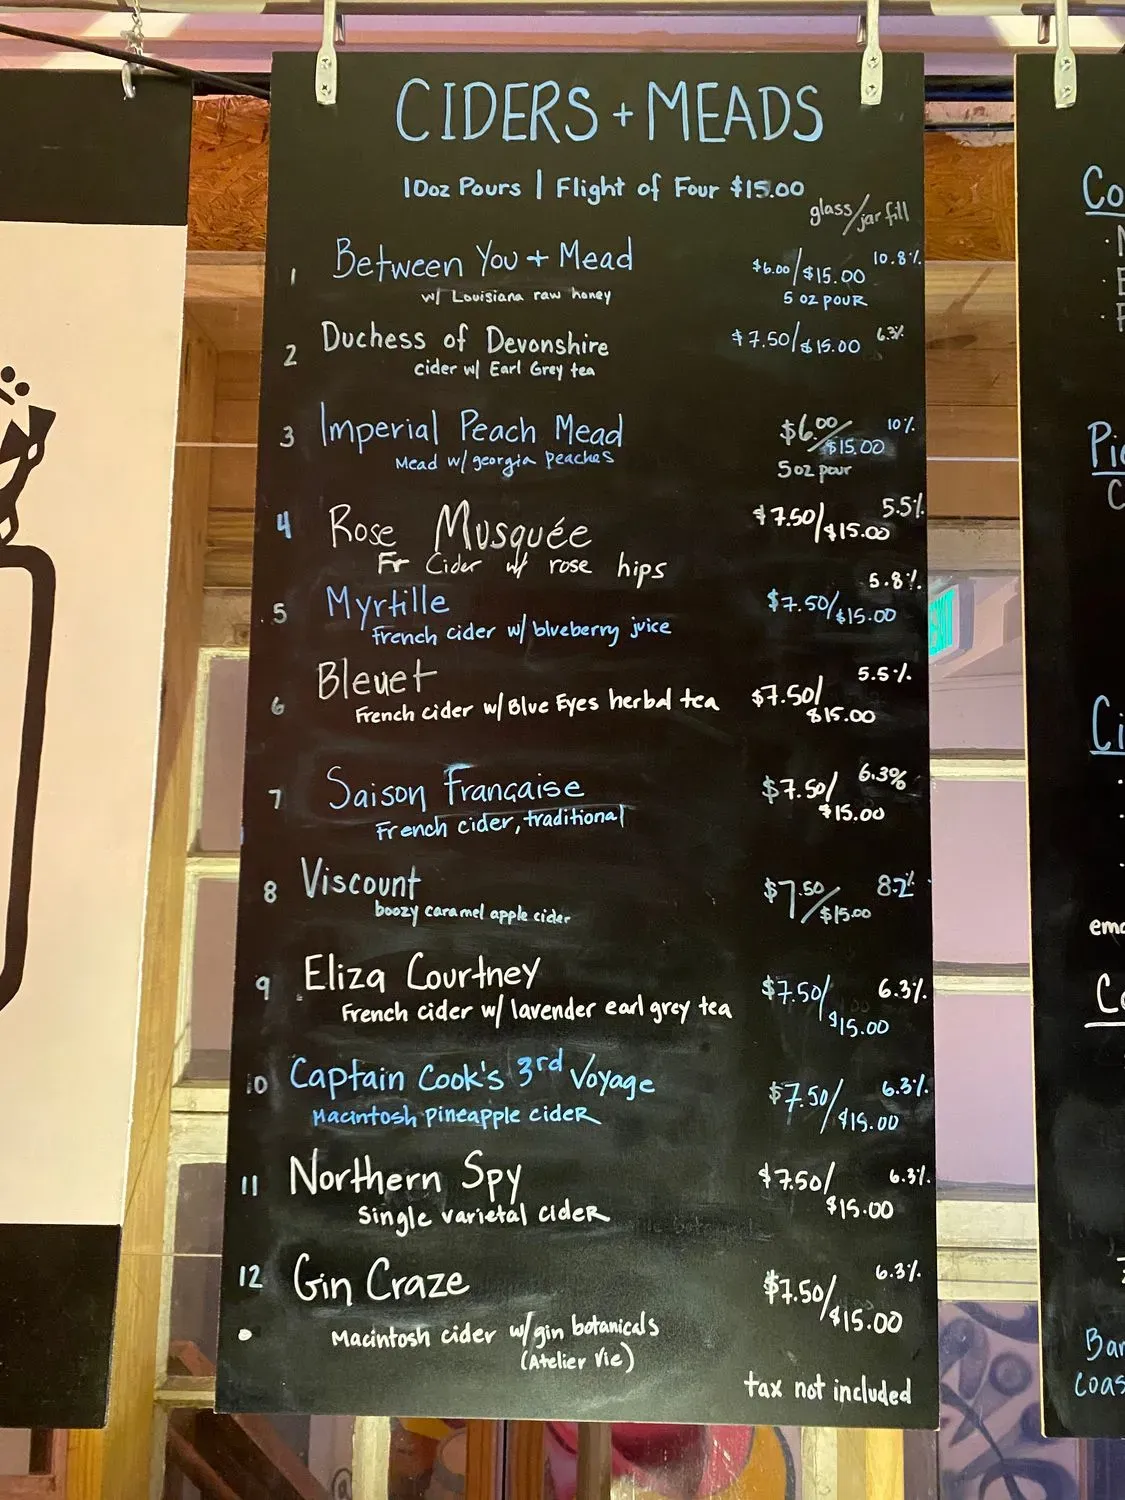 CIDERS + MEADS
10oz Pours | Flight of Four $15.00
glass/jar fill
1 Between You + Mead $6.00/$15.00 10.8%
w/ Louisiana raw honey 5 oz pour
2 Duchess of Devonshire $7.50/$15.00 6.3%
cider w/ Earl Grey tea
3 Imperial Peach Mead $6.00/$15.00 10%
Mead w/ georgia peaches 5oz pour
4 Rose Musquée $7.50/$15.00 5.5%
Fr Cider w/ rose hips
5 Myrtille $7.50/$15.00 5.8%
french cider w/ blueberry juice
6 Bleuet $7.50/$15.00 5.5%
French cider w/ Blue Eyes herbal tea
7 Saison Française $7.50/$15.00 6.3%
French cider, traditional
8 Viscount $7.50/$15.00 8.2%
boozy caramel apple cider
9 Eliza Courtney $7.50/$15.00 6.3%
French cider w/ lavender earl grey tea
10 Captain Cook's 3rd Voyage $7.50/$15.00 6.3%
Macintosh pineapple cider
11 Northern Spy $7.50/$15.00 6.3%
Single varietal cider
12 Gin Craze $7.50/$15.00 6.3%
Macintosh cider w/ gin botanicals
(Atelier Vie)
tax not included